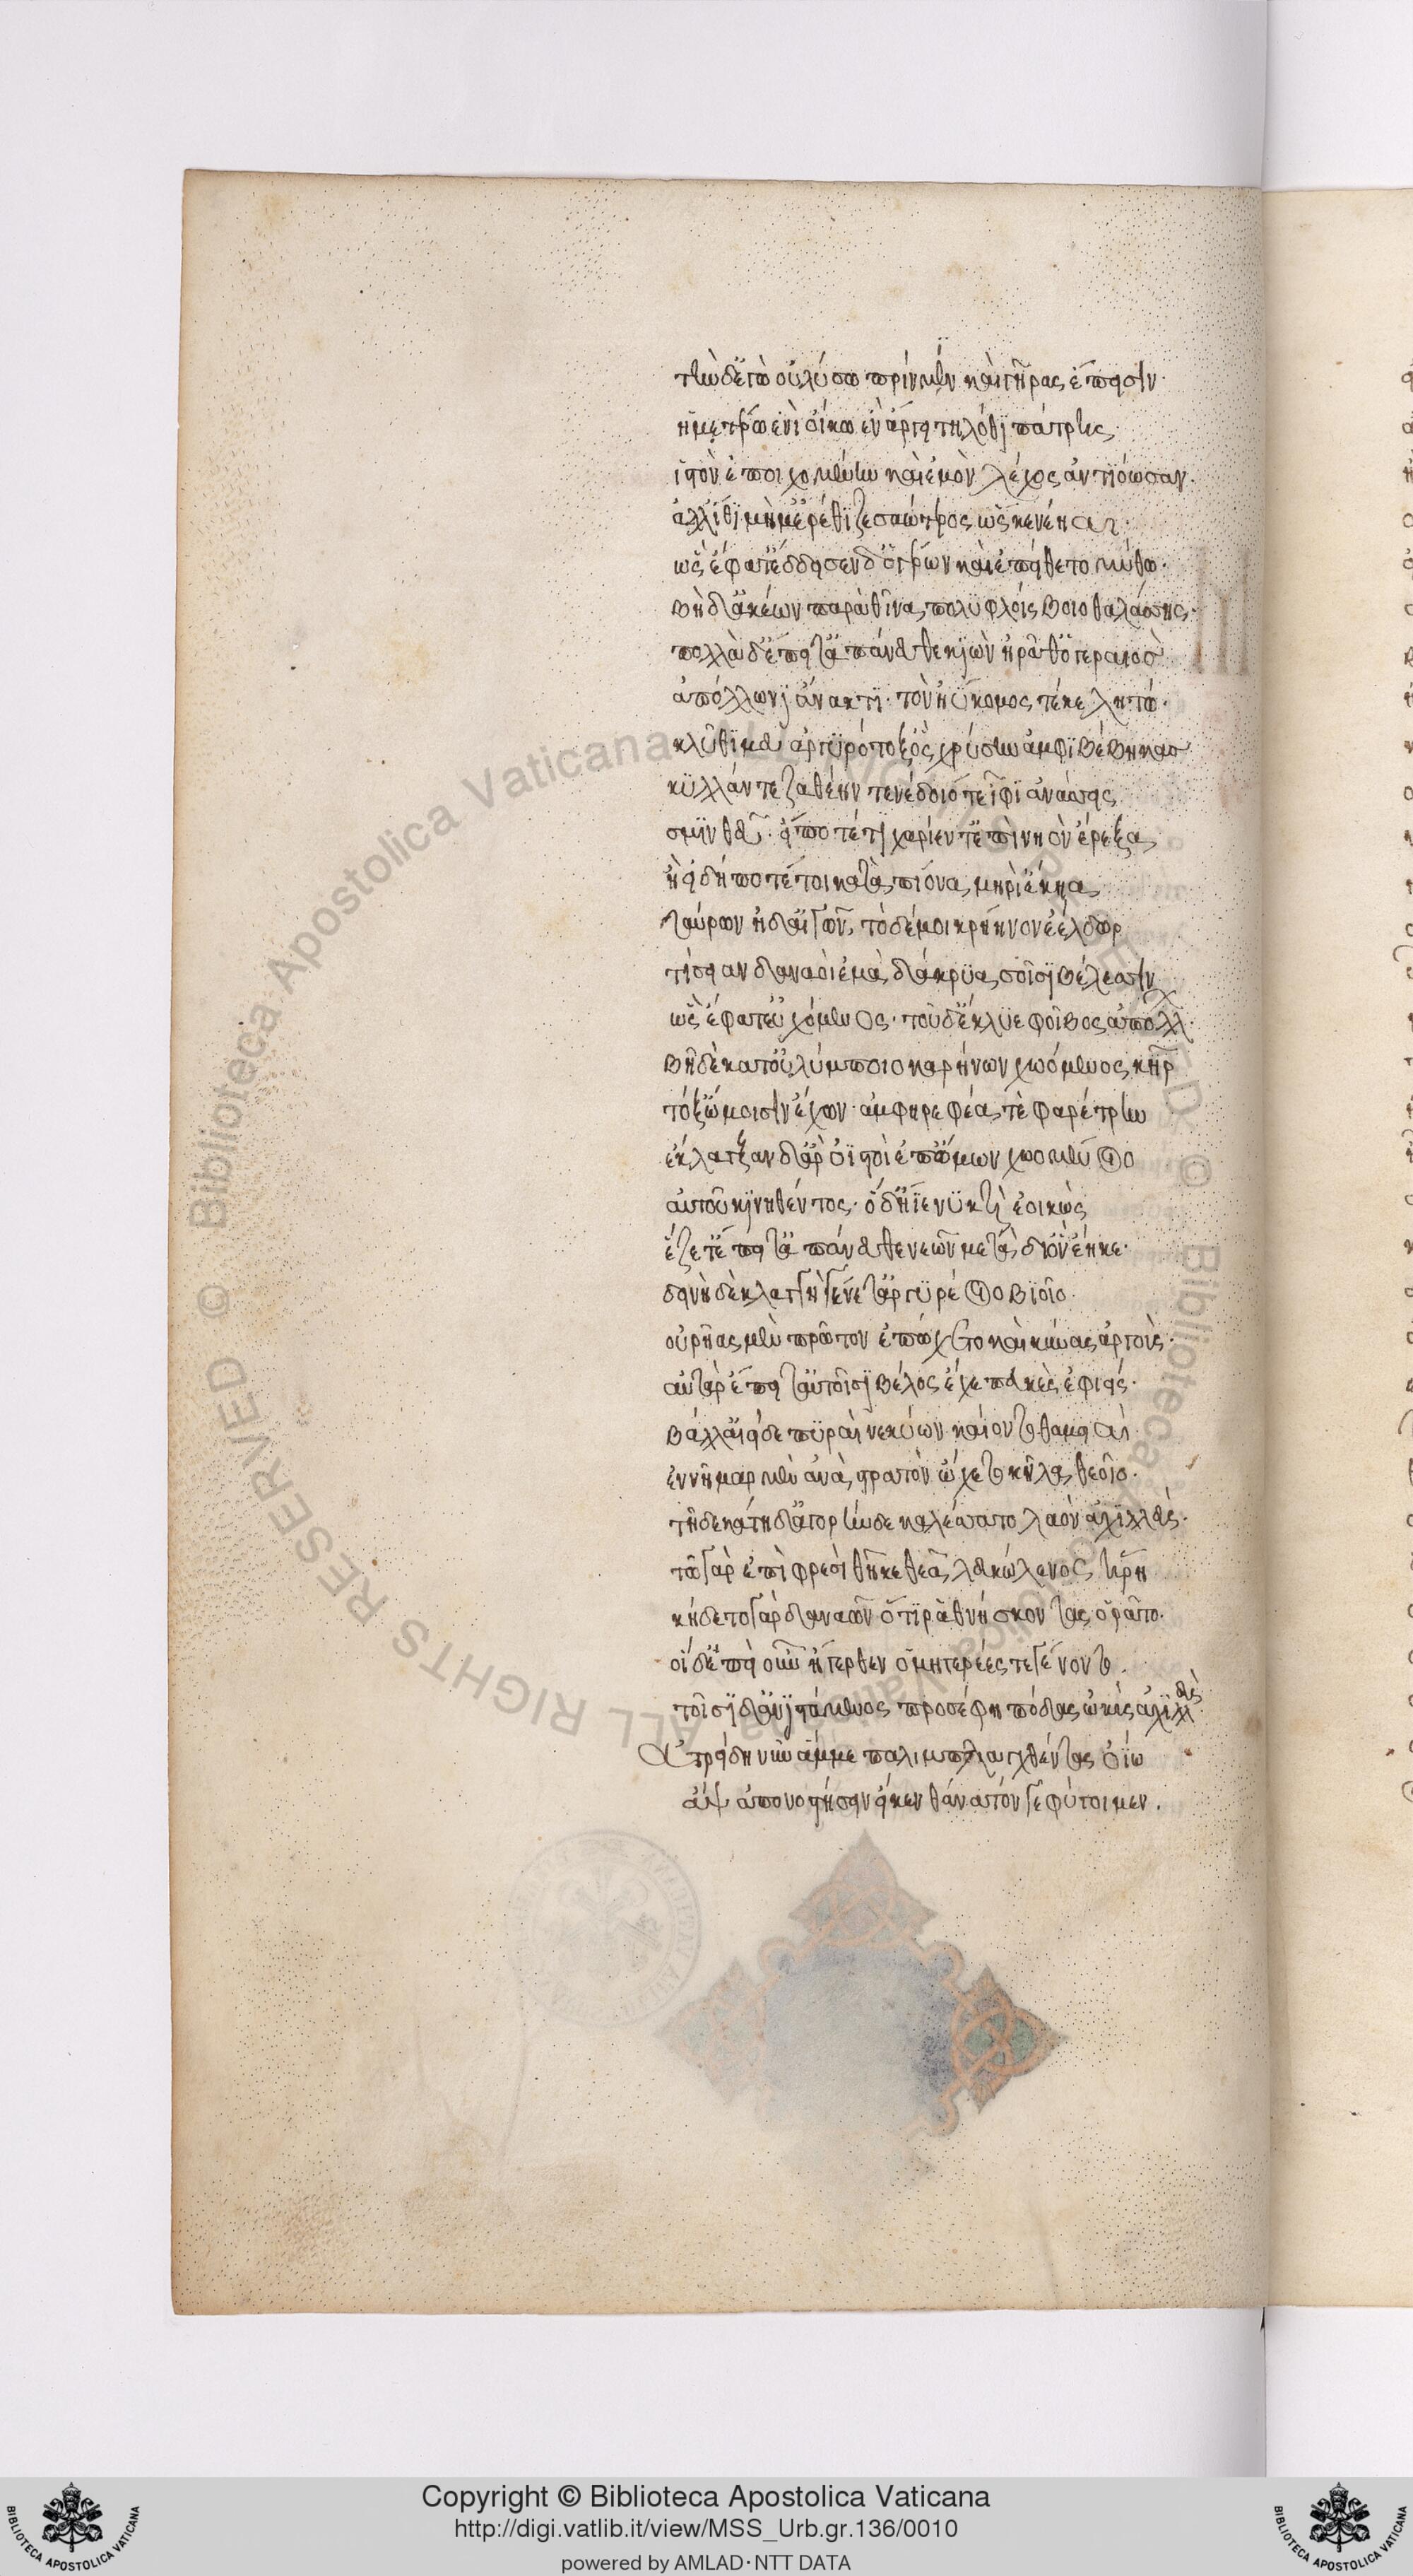 τὴν δ' ἐγὼ οὐ λύσω πρίν μιν καὶ γῆρας ἔπεισιν·
ἡμετέρω ἐνὶ οἴκω ἐν ἄργεϊ τηλόθι πάτρης
ἱστὸν ἐποιχομένην καὶ ἐμὸν λέχος ἀντιόωσαν·
ἀλλ' ἴθι μή μ' ἐρέθιζε σαώτερος ὥς κε νέηαι·
ὣς ἔφατ' ἔδδεισεν δ' ὁ γέρων καὶ ἐπείθετο μύθω·
βῆ δ' ἀκέων παρὰ θῖνα πολυφλοίσβοιο θαλάσσης·
πολλὰ δ' ἔπειτ' ἀπάνευθε κιὼν ἠρᾶθ' ὁ γεραιός
ἀπόλλωνι ἄνακτι· τὸν ἠΰκομος τέκε λητώ·
κλῦθί μευ ἀργυρότοξ' ὃς χρύσην ἀμφιβέβηκας
κύλλάν τε ζαθέην τενέδοιό τε ἶφι ἀνάσσεις
σμινθεῦ· εἴποτέ τι χαρίεντ' ἐπὶ νηὸν ἔρεξα
ἢ εἰ δήποτέ τοι κατὰ πίονα μηρί' ἔκηα
ταύρων ἠδ' αἰγῶν, τὸ δέ μοι κρήηνον ἐέλδωρ
τίσειαν δαναοὶ ἐμὰ δάκρυα σοῖσι βέλεσσιν
ὣς ἔφατ' εὐχόμενος· τοῦ δ' ἔκλυε φοῖβος ἀπόλλων·
βῆ δὲ κατ' οὐλύμποιο καρήνων χωόμενος κῆρ
τόξ' ὤμοισιν ἔχων· ἀμφηρεφέα τὲ φαρέτρην
ἔκλαγξαν δ' ἄρ' ὀϊστοὶ ἐπ' ὤμων χωομένοιο
αὐτοῦ κινηθέντος· ὃ δ' ἤϊε νυκτὶ ἐοικώς
ἕζετ' ἔπειτ' ἀπάνευθε νεῶν μετὰ δ' ἰὸν ἕηκε·
δεινὴ δὲ κλαγγὴ γένετ' ἀργυρέοιο βιοῖο·
οὐρῆας μὲν πρῶτον ἐπώχετο καὶ κύνας ἀργούς·
αὐτὰρ ἔπειτ' αὐτοῖσι βέλος ἐχεπευκὲς ἐφιείς·
βάλλ' αἰεὶ δε πυραὶ νεκύων καίοντο θαμειαί·
ἐννῆμαρ μὲν ἀνὰ στρατὸν ὤχετο κῆλα θεοῖο·
τῆ δεκάτη δ' ἀγορὴν δε καλέσσατο λαὸν ἀχιλλεύς·
τῶ γὰρ ἐπὶ φρεσὶ θῆκε θεὰ λευκώλενος ἥρη
κήδετο γὰρ δαναῶν ὅτι ῥα θνήσκοντας ὁρᾶτο·
οἱ δ' ἐπεὶ οὖν ἤγερθεν ὁμηγερέες τε γένοντο·
τοῖσι δ' ἀνιστάμενος προσέφη πόδας ὠκὺς ἀχιλλεύς
Ἀτρείδη νῦν ἄμμε παλιμπλαγχθέντας ὀΐω
ἂψ ἀπονοστήσειν εἴκεν θάνατόν γε φύγοιμεν·
Copyright © Biblioteca Apostolica Vaticana
http://digi.vatlib.it/view/MSS_Urb.gr.136/0010
powered by AMLAD·NTT DATA